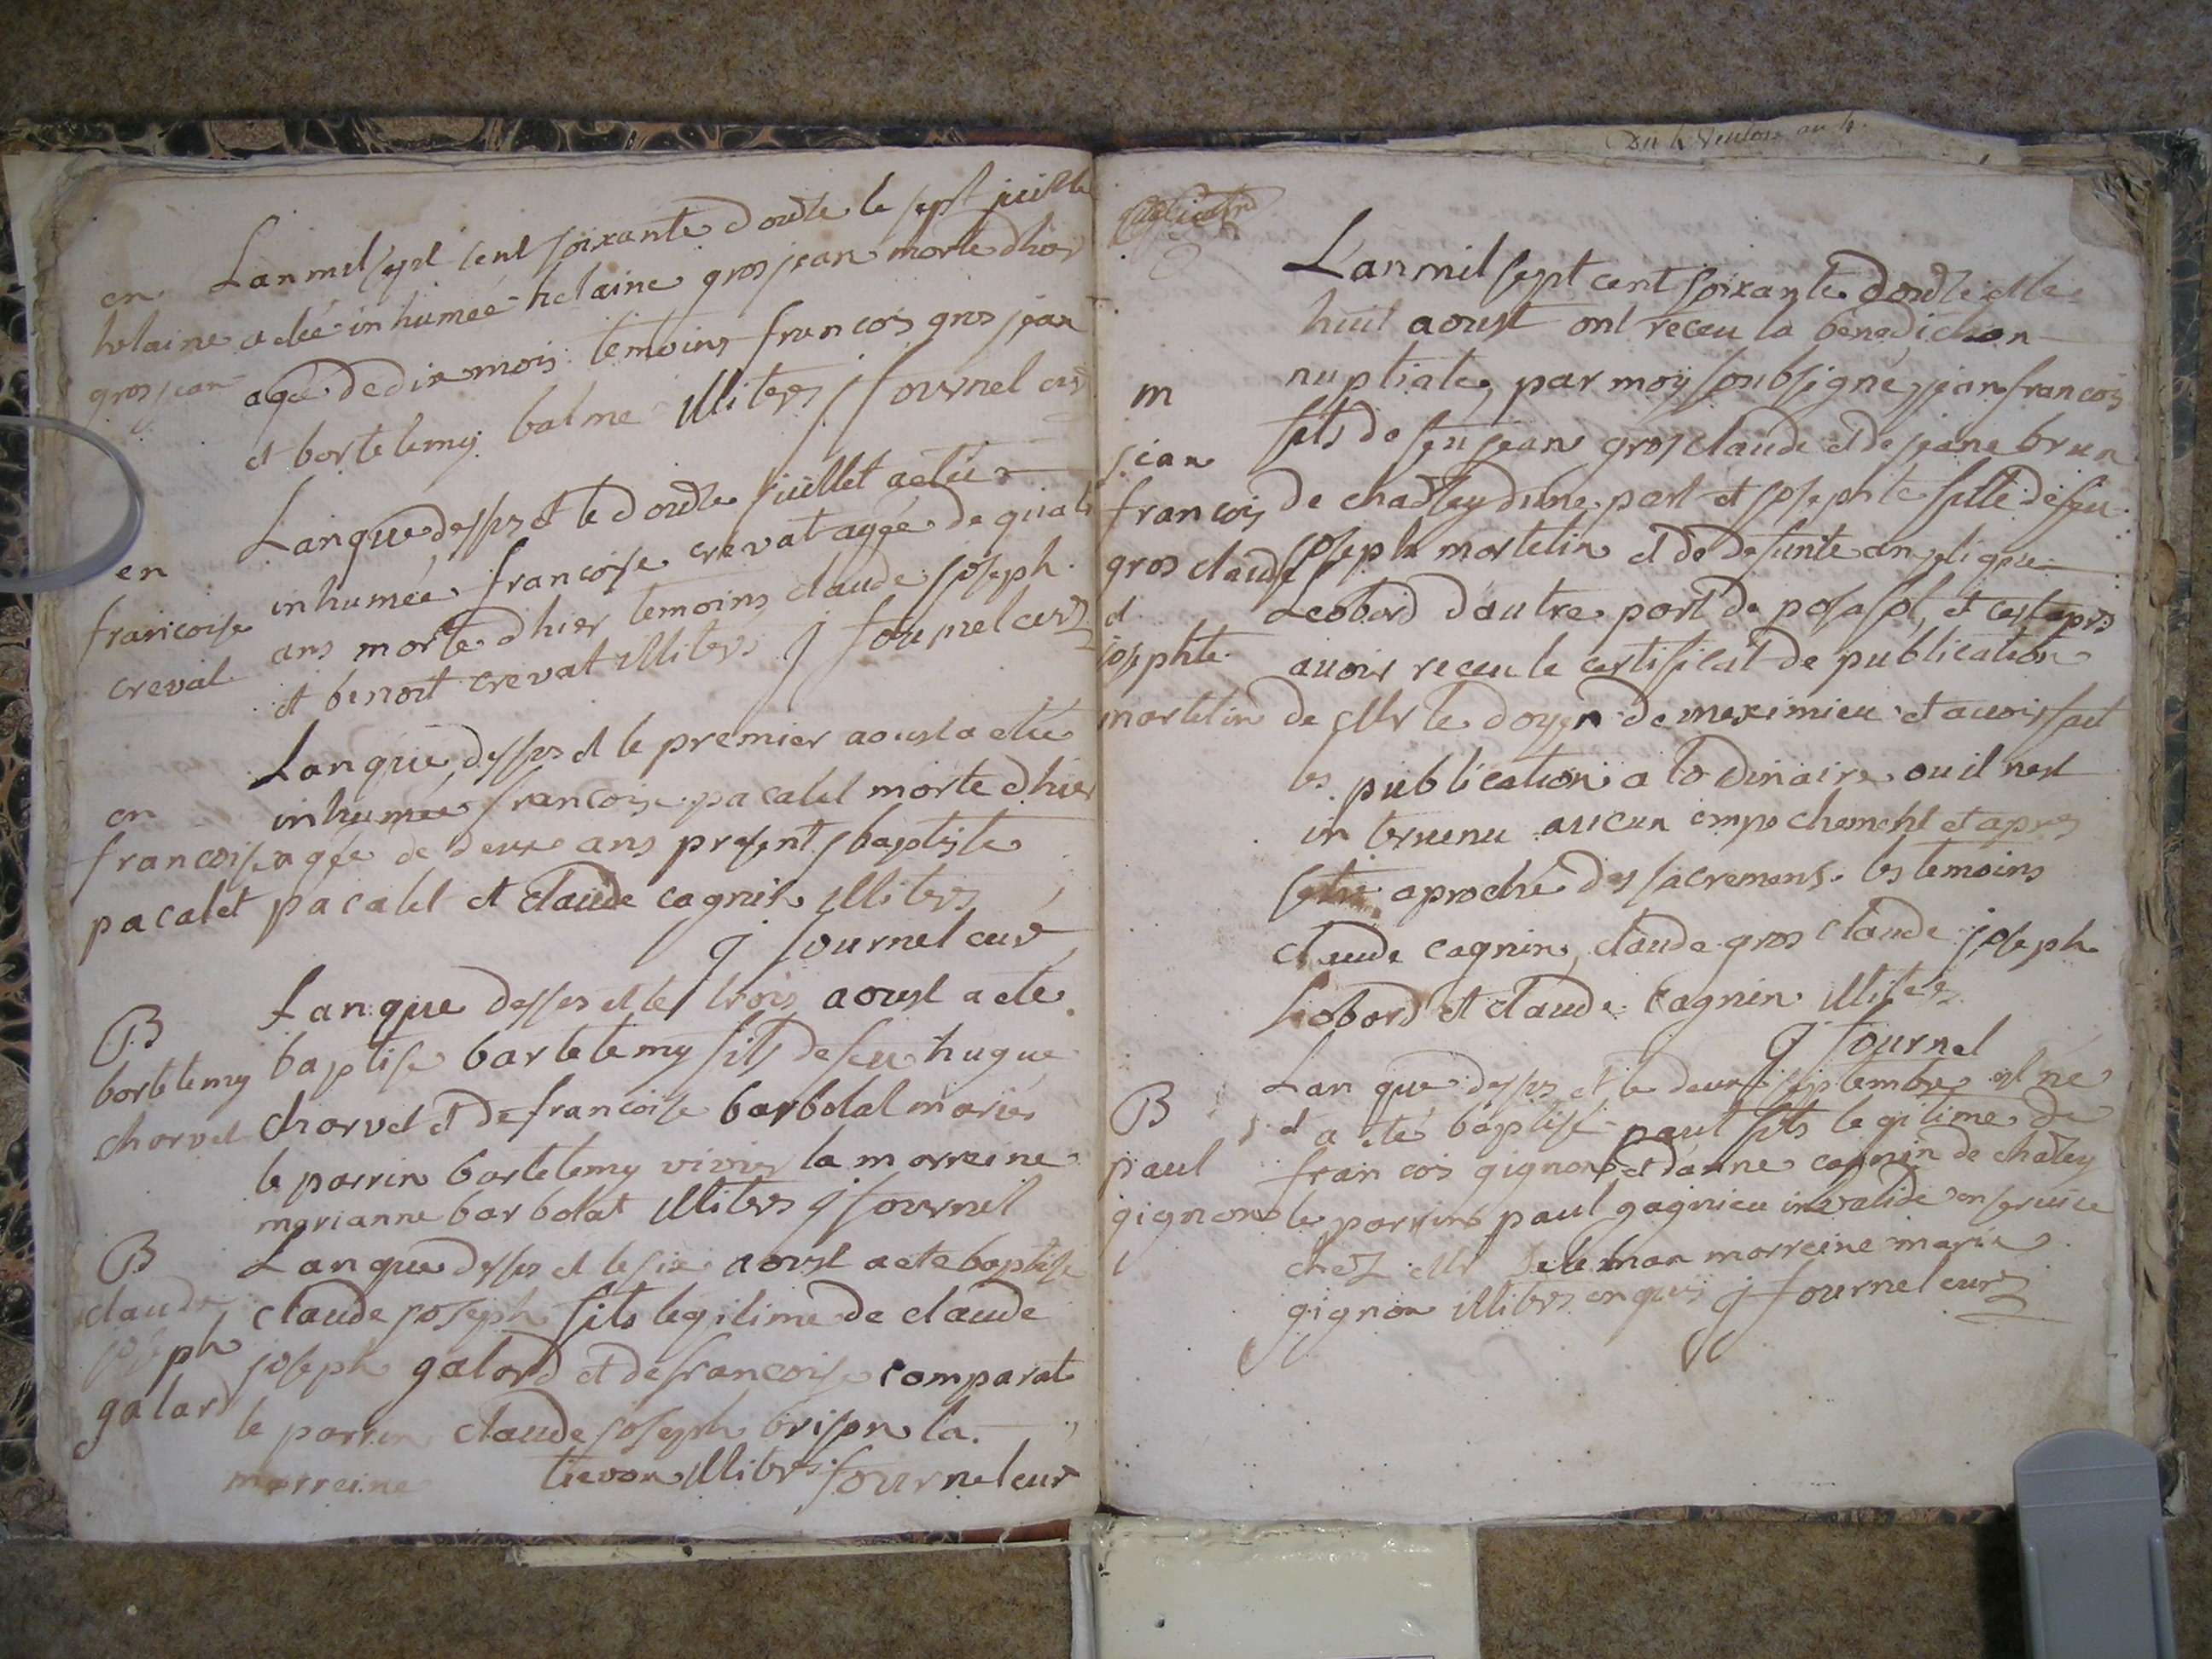 en
helaine
gros jean
Lan mil sept cent soixante douze le sept juillet
a eteé inhumeé helaine gros jean morte dhier
ageé de dix mois temoins francois gros jean
et bartelemy balme illiteres j fournel curé
en
francoise
crevat
Lan que desus et le douze juillet a eteé
inhumeé francoise crevat ageé de quatre
ans morte dhier temoins claude joseph
et benoit crevat illiteres j fournel curé
en
francoise
pacalet
Lan que desus et le premier aoust a eteé
inhumeé francoise pacalet morte dhier
ageé de deux ans present baptiste
pacalet et claude cagnin illiteres
j fournel curé
B
bartelemy
charvet
Lan que desus et le trois aoust a ete
baptise bartelemy fils de feu hugue
charvet et de francoise barbolat mariés
le parrin bartelemy vivier la marreine
marianne barbolat illiteres j fournel
B
claude
joseph
galard
Lan que desus et le six aoust a ete baptise
claude joseph fils legitime de claude
joseph galard et de francoise comparat
le parrin claude joseph brison la
marreine trevon illiteres fournel curé
m
jean
francois
gros claude
et
josephte
martelin
L'an mil sept cent soixante douze et le
huit aoust ont receu la benediction
nuptiale, par moy soubsigné, jean francois
fils de feu jean gros claude et de jeane brun
de chazey dune part et josephte fille de feu
joseph martelin et de defunte angelique
Leobard dautre part de posafol, et cest apres
avoir receu le certificat de publication
de Mr le doyen de meximieu et avoir fait
les publication a lordinaire ou il nest
intervenu aucun empechement et apres
setre aproché des sacremens les temoins
claude cagnin, claude gros claude joseph
Liobard et claude cagnin illiteres
j fournel
B
paul
gignon
Lan que desus et le deux septembre est né
et a eté baptisé paul fils legitime de
francois gignon et danne cagnin de chazey
le parrins paul gagnieu invalide en service
chez Mr marreine marie
gignon illiteres enquis j fournel curé